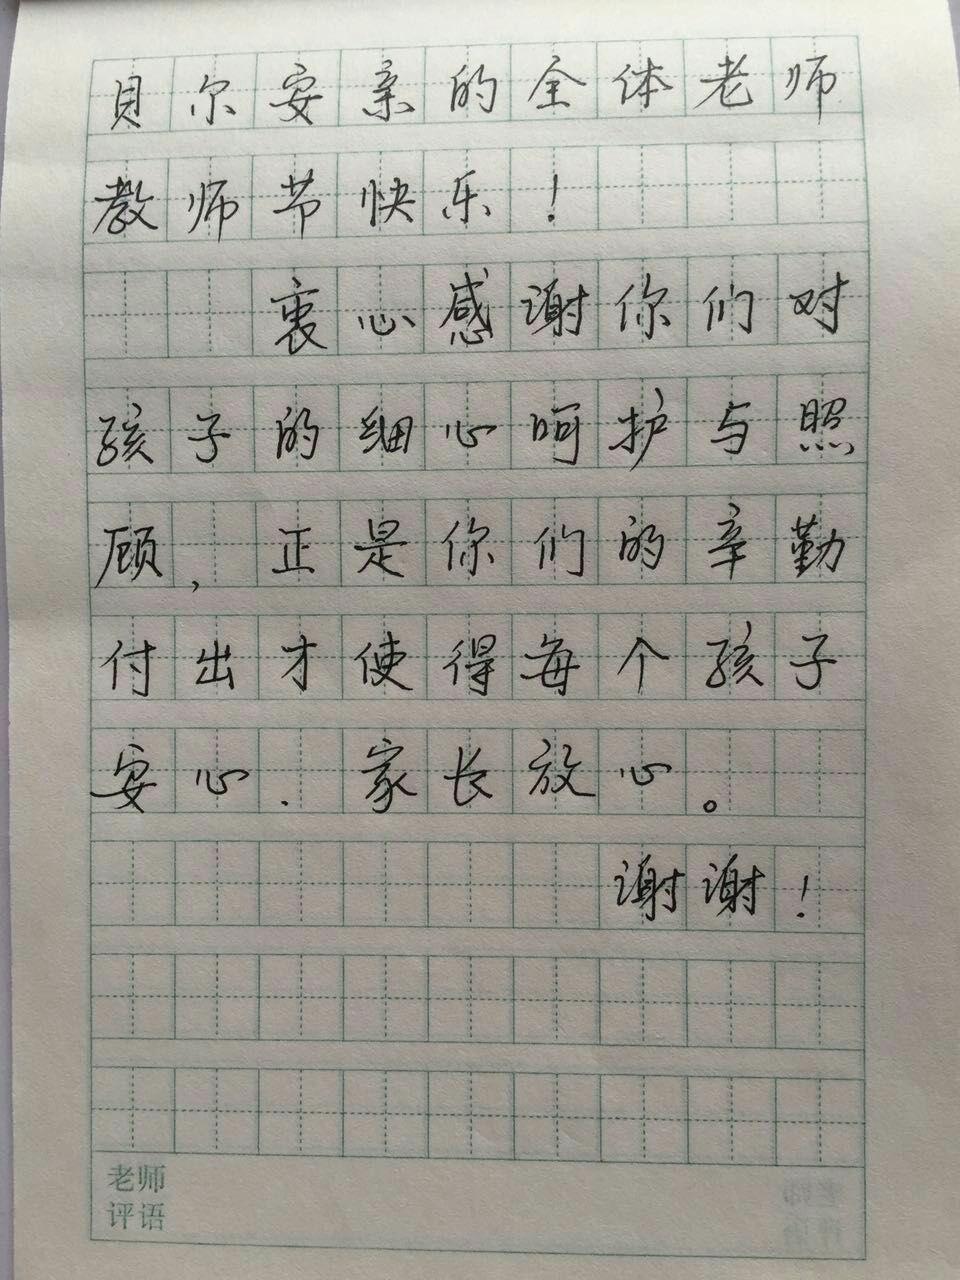 贝尔安亲的全体老师
教师节快乐！
衷心感谢你们对
孩子的细心呵护与照
顾，正是你们的辛勤
付出才使得每个孩子
安心．家长放心。
谢谢！
老师
评语